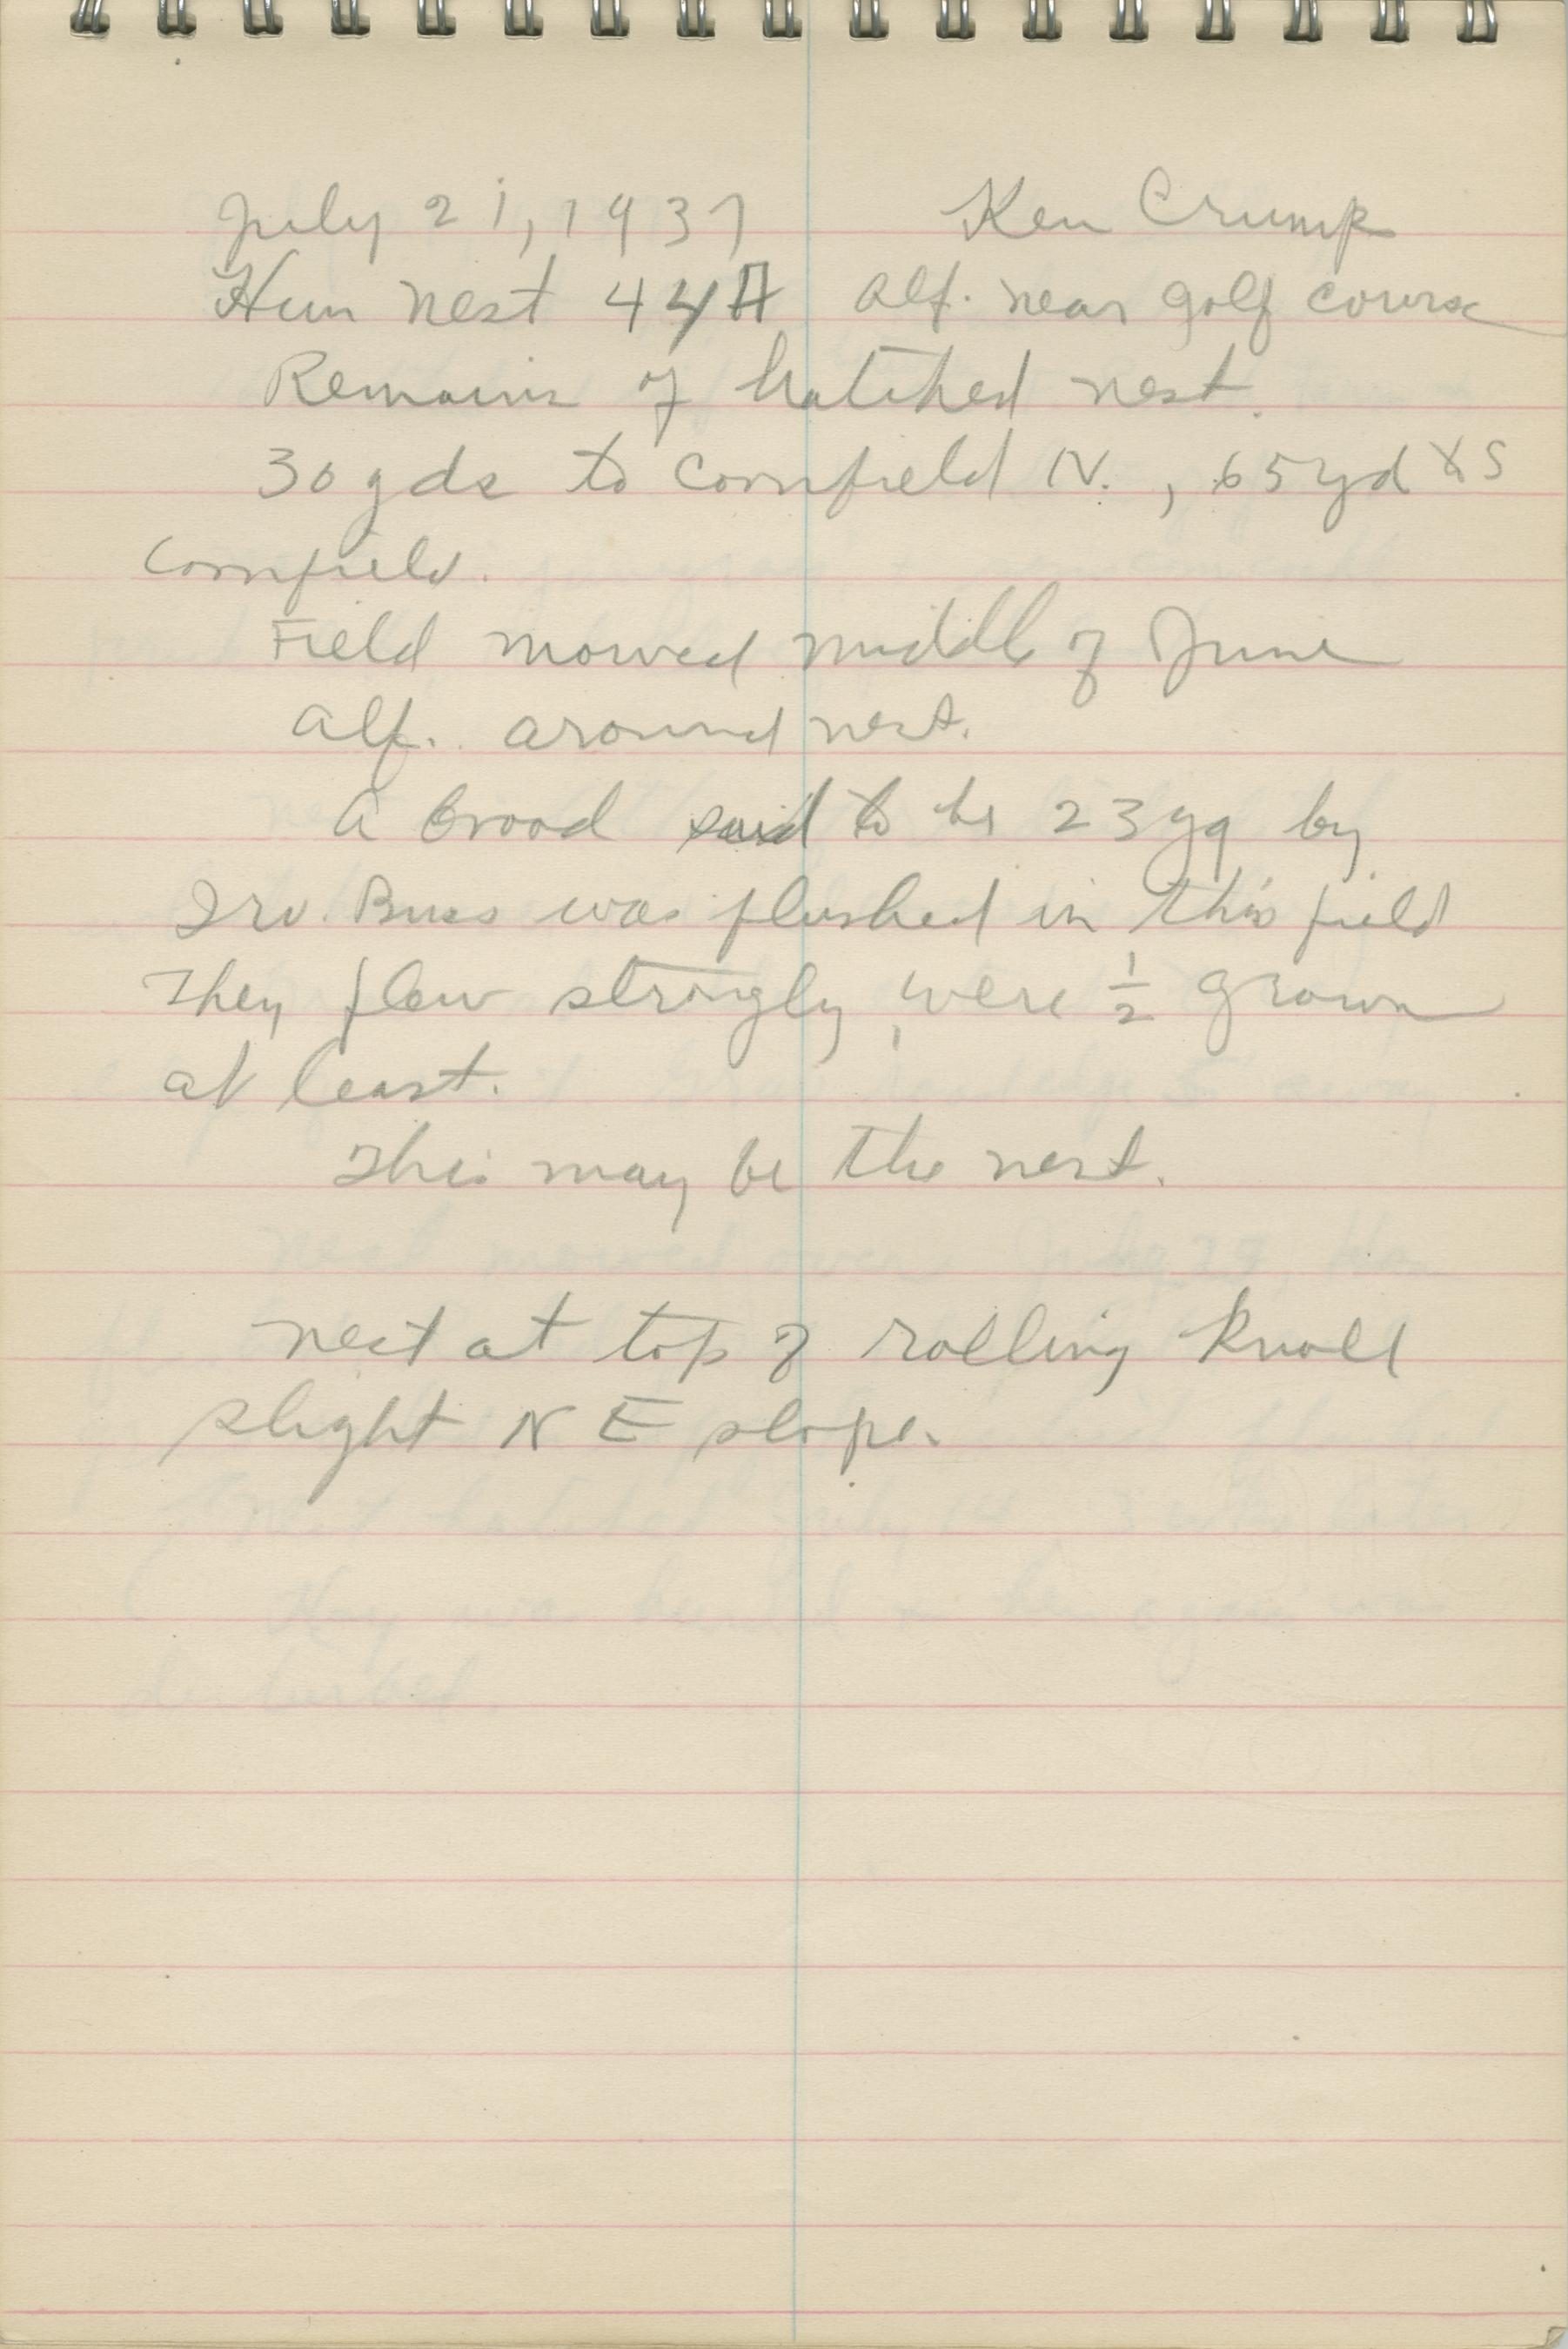 July 21, 1937 Ken Crump
Hun nest 44A alf. near golf course
Remains of hatched nest.
30 yds to cornfield N., 65 yd to S
cornfield.
Field mowed middle of June
alf. around nest.
A brood said to be 23 yg by
Irv. Buss was flushed in this field
They flew strongly, were ½ grown
at least.
This may be the nest.
nest at top of rolling knoll
slight N E slope.